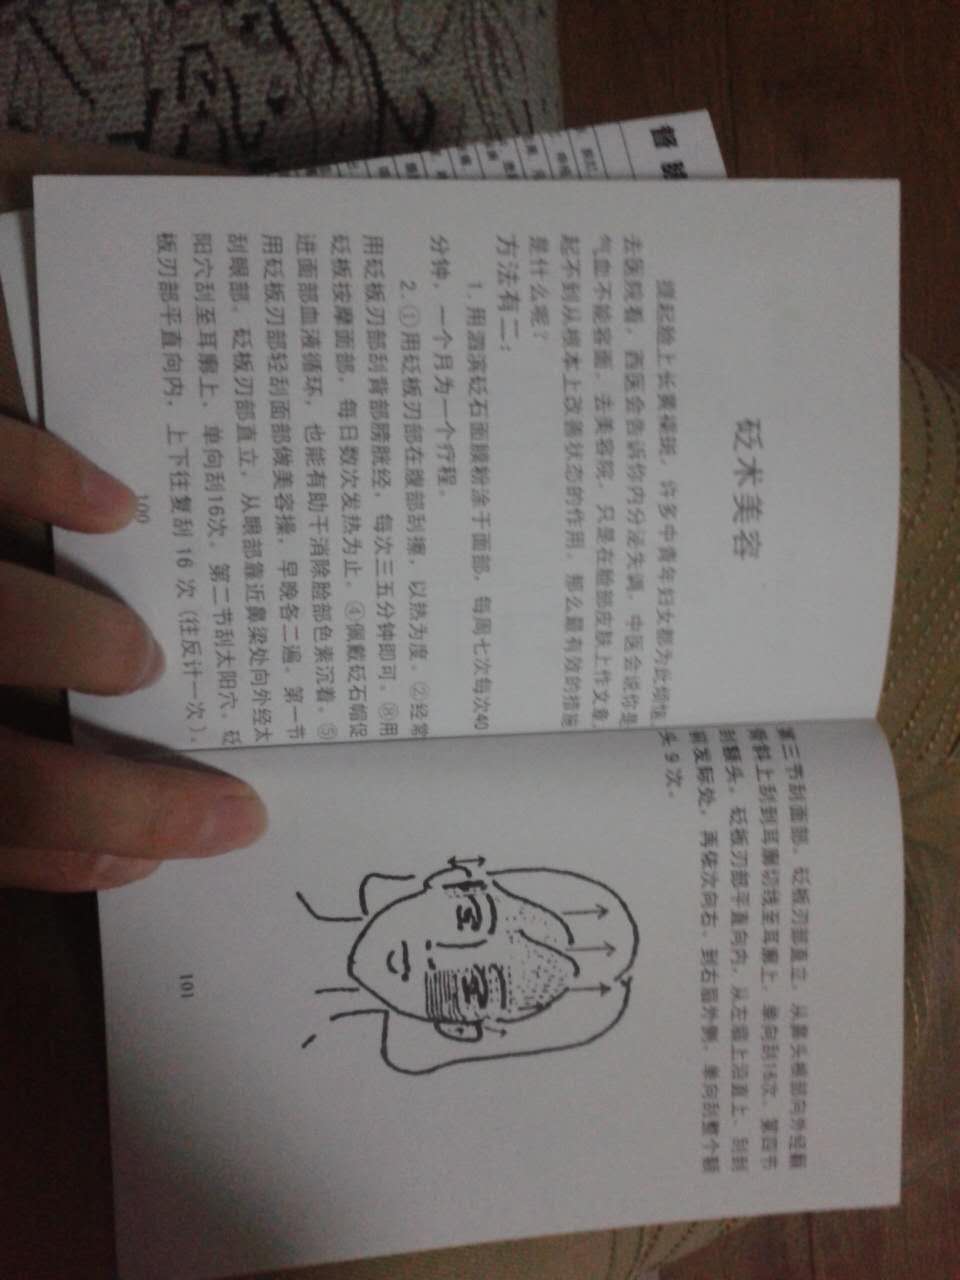 砭术美容
提起脸上长黄褐斑，许多中青年妇女都为此烦恼
去医院看，西医会告诉你内分泌失调，中医会说你是
气血不能容面，去美容院，只是在脸部皮肤上作文章
起不到从根本上改善状态的作用，那么最有效的措施
是什么呢？
方法有二：
1. 用泗滨砭石面膜粉涂于面部，每周七次每次40
分钟，一个月为一个疗程。
2. ①用砭板刃部在腹部刮擦，以热为度。②经常
用砭板刃部刮背部膀胱经，每次三五分钟即可。③用
砭板按摩面部，每日数次发热为止。④佩戴砭石帽促
进面部血液循环，也能有助于消除脸部色素沉着。⑤
用砭板刃部轻刮面部做美容操，早晚各二遍。第一节
刮眼部。砭板刃部直立，从眼部靠近鼻梁处向外经太
阳穴刮至耳廓上，单向刮16次。第二节刮太阳穴。砭
板刃部平直向内，上下往复刮 16 次（往反计一次）。
100
第三节刮面部。砭板刃部直立，从鼻头根部向外经颧
骨斜上刮到耳廓切线至耳廓上，单向刮16次。第四节
刮额头。砭板刃部平直向内，从左眉上沿直上，刮到
前发际处，再依次向右，到右眉外侧，单向刮整个额
头 9 次。
101